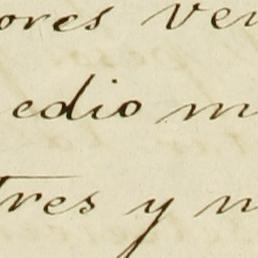 ores ven
edio m
tres y n